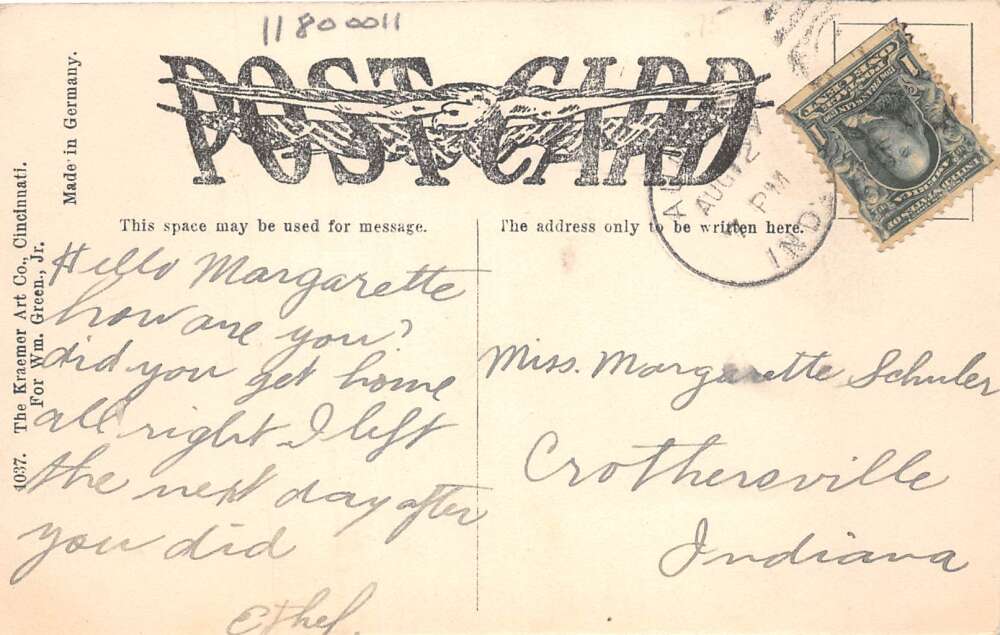 11800011
POST CARD
Made in Germany.
1037. The Kraemer Art Co., Cincinnati.
For Wm. Green., Jr.
This space may be used for message.
The address only to be written here.
AUG 12
PM
IND.
1
1
Hello Margarette
how are you?
did you get home
all right I left
the next day after
you did
Ethel.
Miss. Margarette Schuler
Crothersville
Indiana